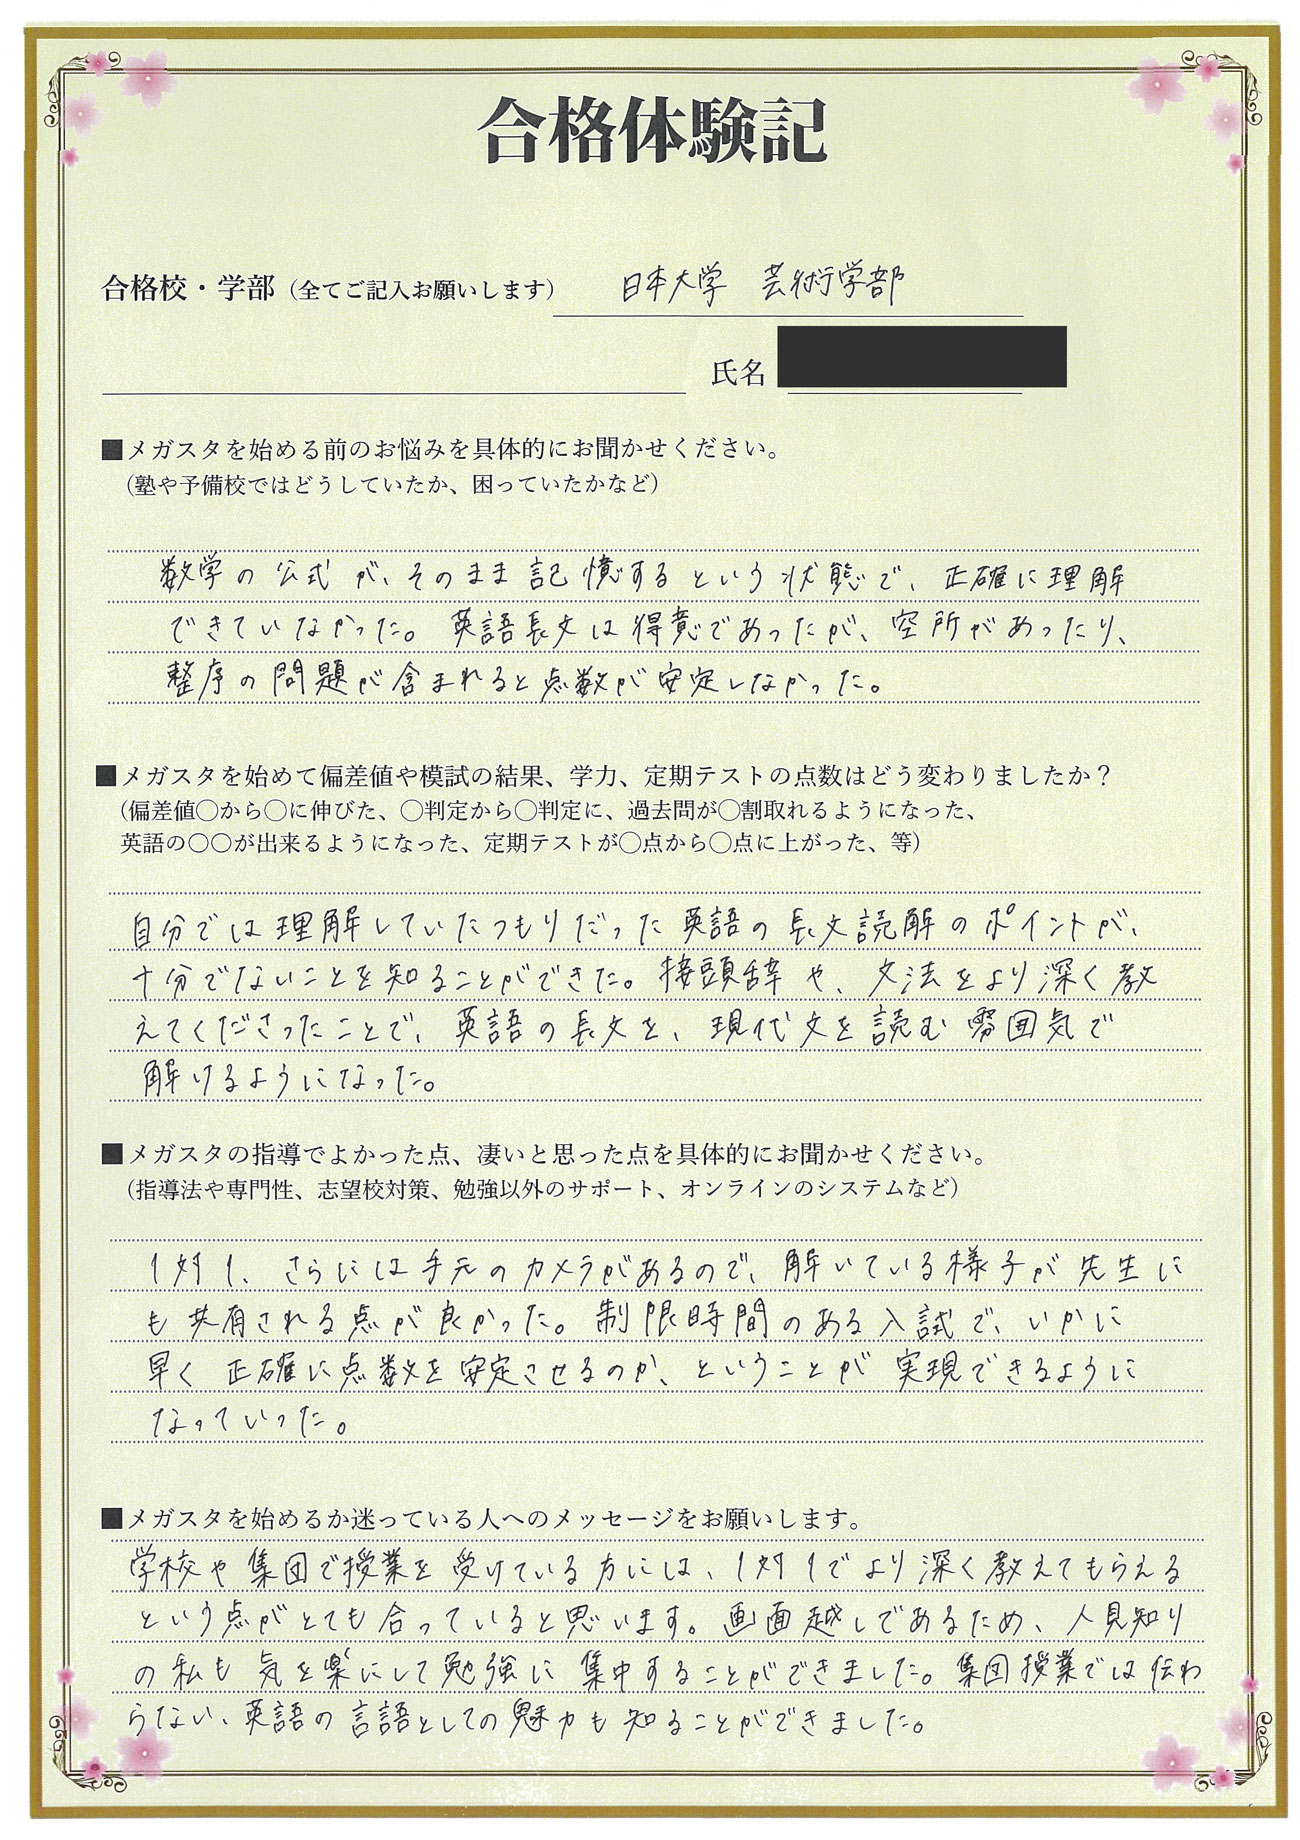 合格体験記
合格校・学部（全てご記入お願いします） 日本大学 芸術学部
氏名
■メガスタを始める前のお悩みを具体的にお聞かせください。
（塾や予備校ではどうしていたか、困っていたかなど）
数学の公式が、そのまま記憶するという状態で、正確に理解
できていなかった。英語長文は得意であったが、空所があったり、
整序の問題が含まれると点数が安定しなかった。
■メガスタを始めて偏差値や模試の結果、学力、定期テストの点数はどう変わりましたか？
（偏差値〇から〇に伸びた、〇判定から〇判定に、過去問が〇割取れるようになった、
英語の〇〇が出来るようになった、定期テストが〇点から〇点に上がった、等）
自分では理解していたつもりだった英語の長文読解のポイントが、
十分でないことを知ることができた。接頭辞や、文法をより深く教
えてくださったことで、英語の長文を、現代文を読む雰囲気で
解けるようになった。
■メガスタの指導でよかった点、凄いと思った点を具体的にお聞かせください。
（指導法や専門性、志望校対策、勉強以外のサポート、オンラインのシステムなど）
1対1、さらには手元のカメラがあるので、解いている様子が先生に
も共有される点が良かった。制限時間のある入試で、いかに
早く正確に点数を安定させるのか、ということが実現できるように
なっていった。
■メガスタを始めるか迷っている人へのメッセージをお願いします。
学校や集団で授業を受けている方には、1対1でより深く教えてもらえる
という点がとても合っていると思います。画面越しであるため、人見知り
の私も気を楽にして勉強に集中することができました。集団授業では伝わ
らない、英語の言語としての魅力も知ることができました。